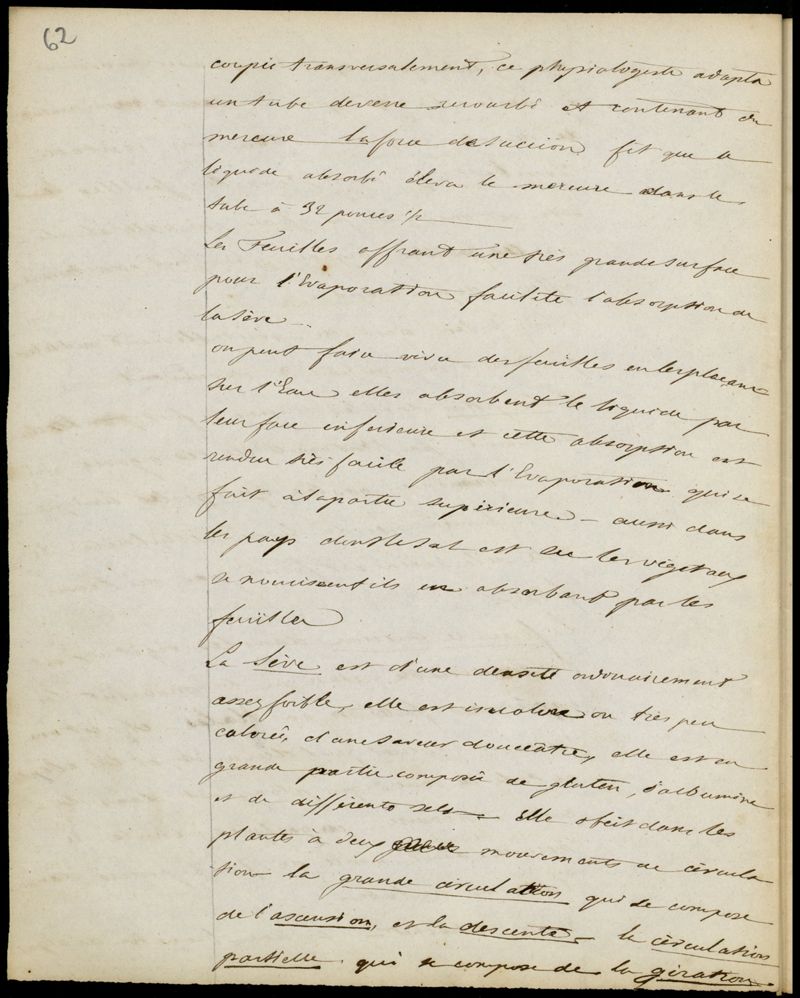 62
coupée transversalement, ce physiologiste adapta
un tube de verre recourbé et contenant du
mercure la force de succion fit que le
liquide absorbé éleva le mercure dans le
tube à 32 pouces ½
Les Feuilles offrant une très grande surface
pour l'Evaporation facilite l'absorption de
la sève.
on peut faire vivre des feuilles en les plaçant
sur l'Eau elles absorbent le liquide par
leur face inferieure et cette absorption est
rendue très facile par l'Evaporation qui se
fait à la partie supérieure. – aussi dans
les pays dont le sol est sec les végetaux
se nourissent ils en absorbant par les
feuilles
La Sève est d'une densité ordonairement
assez foible, elle est incolore ou très peu
colorée, d'une saveur douceâtre, elle est en
grande partie composée de gluten, d'albumine
et de différents sels – Elle obéit dans les
plantes à deux mouvements de circula
tion la grande circulation qui se compose
de l'ascension, et la descente, la circulation
partielle qui se compose de la giration.